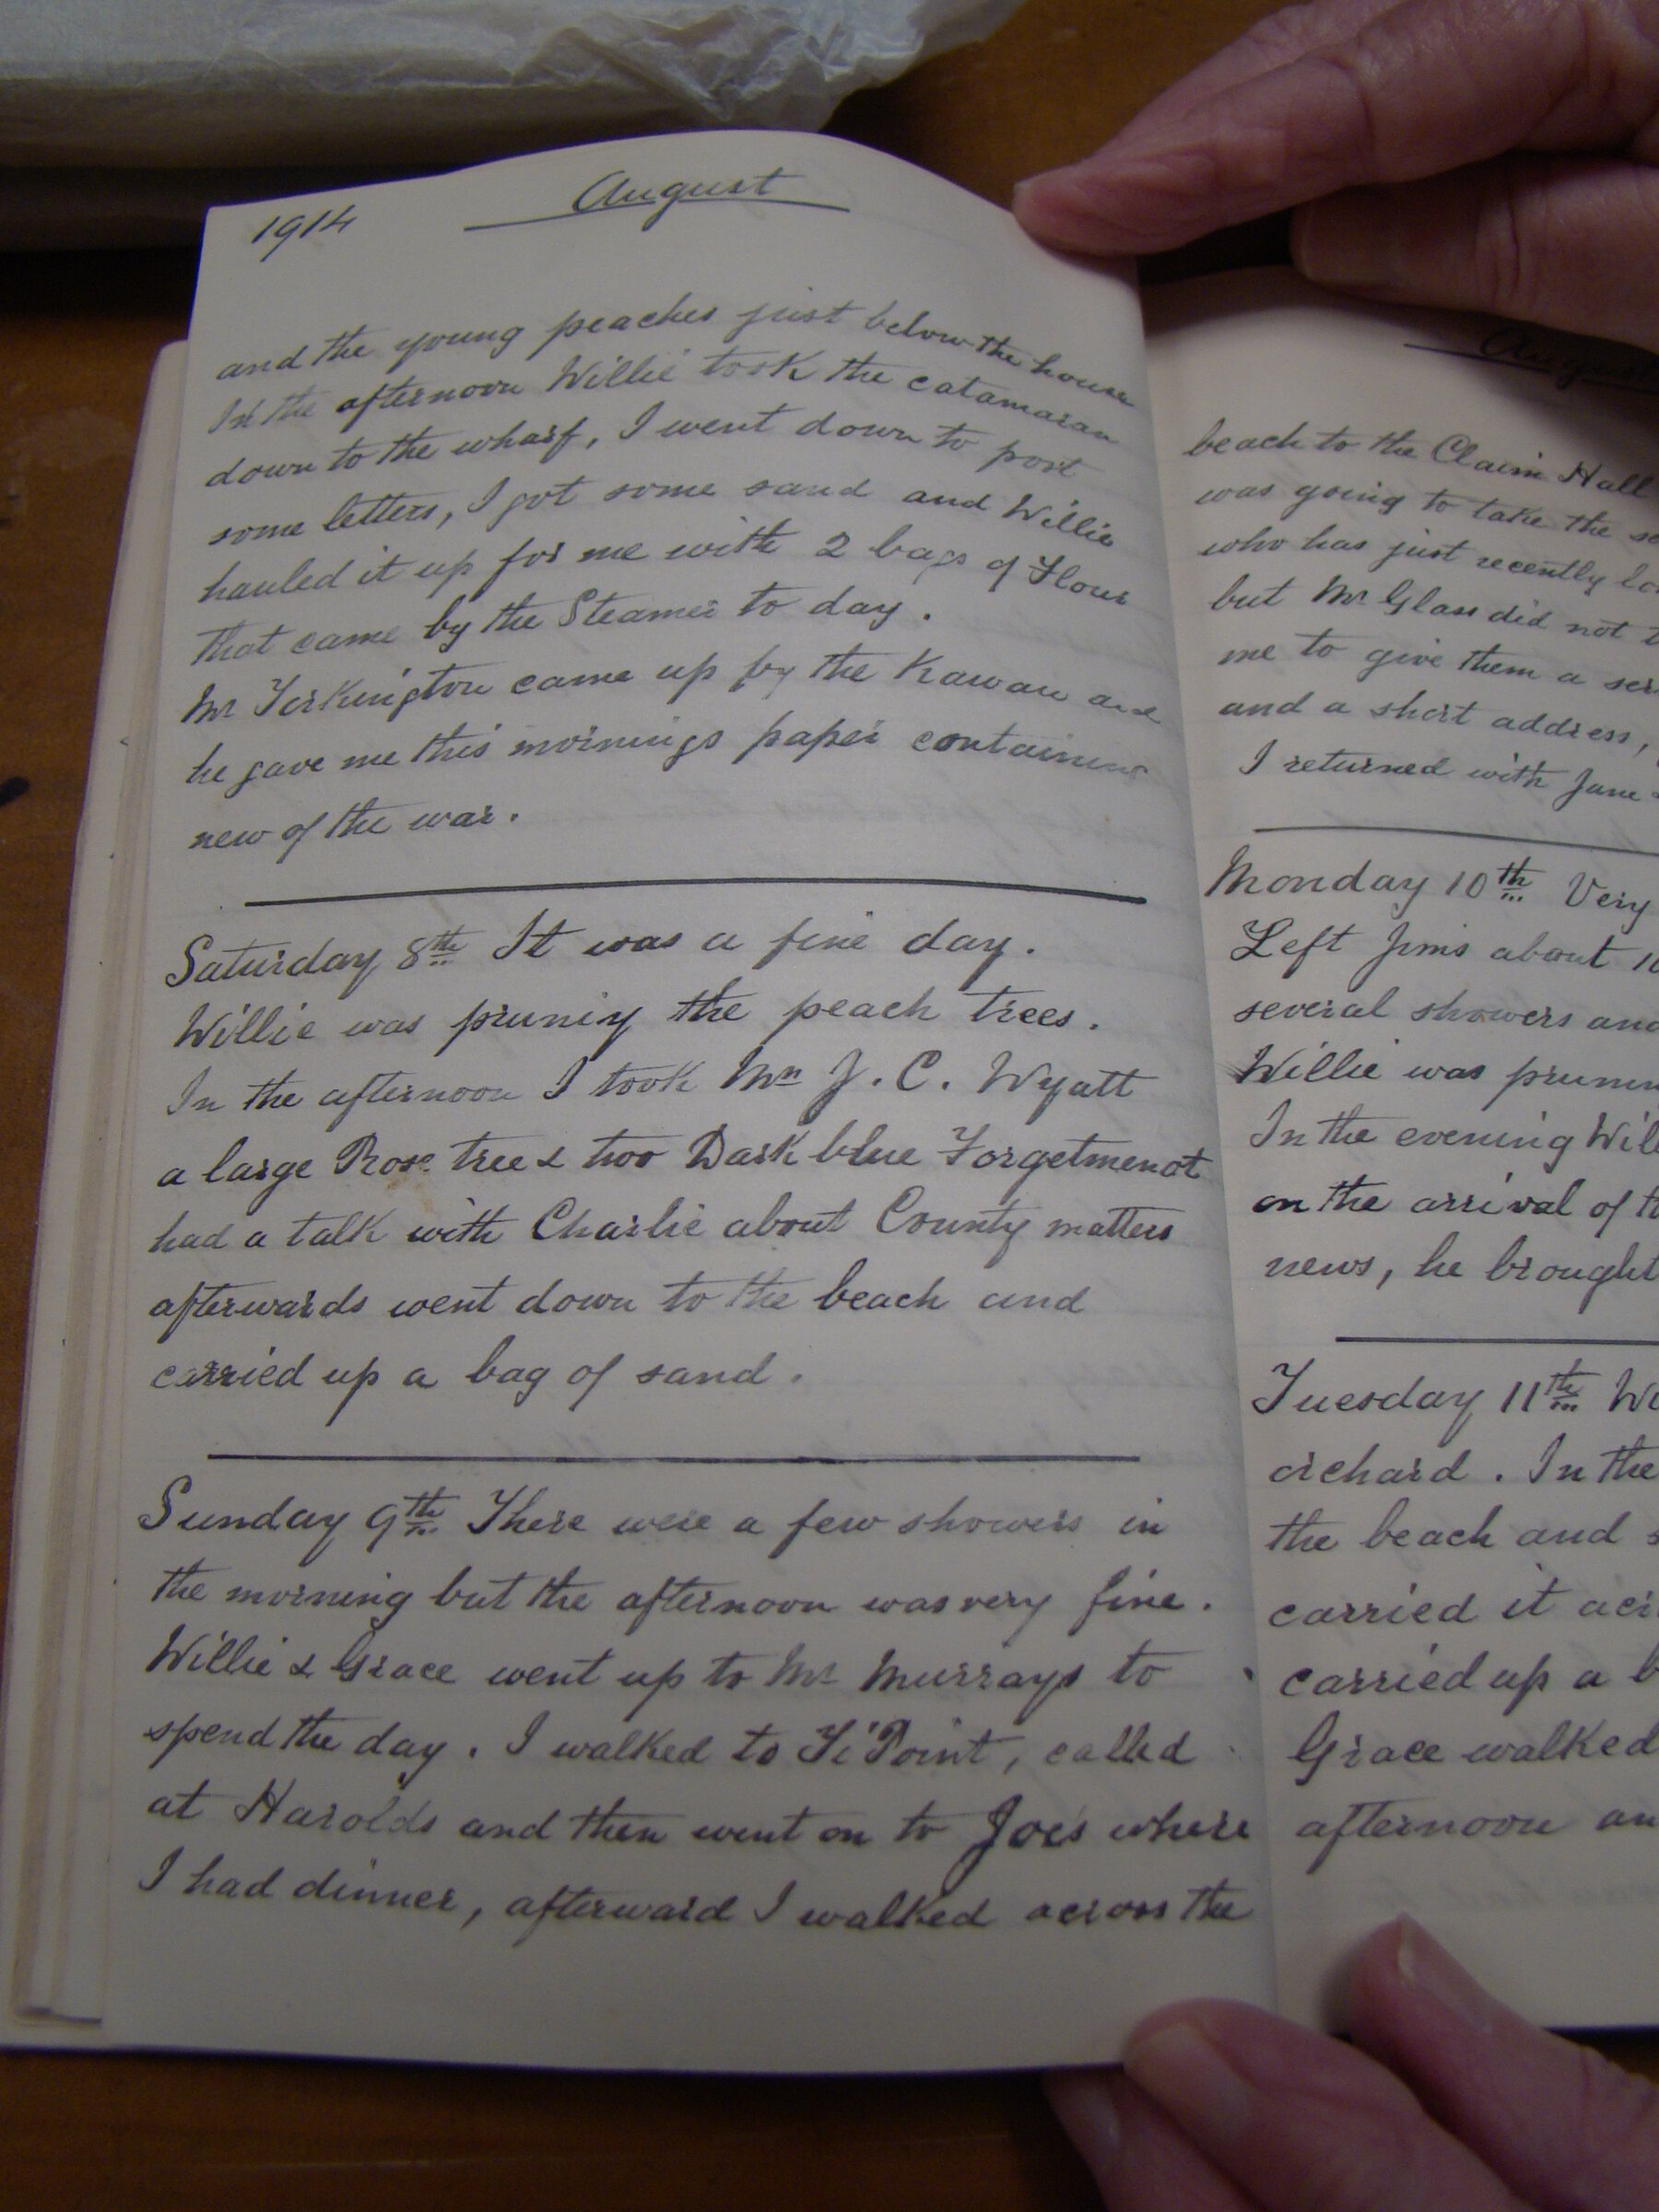 1914
August
and the young peaches just below the house
In the afternoon Willie took the catamaran
down to the wharf, I went down to post
some letters, I got some sand and Willie
hauled it up for me with 2 bags of Flour
that came by the Steamer to day.
Mr Torkington came up by the Kawau and
he gave me this mornings paper containing
new of the war.
Saturday 8th It was a fine day.
Willie was pruning the peach trees.
In the afternoon I took J. C. Wyatt
a large Rose tree & two Dark blue Forgetmenot
had a talk with Charlie about County matters
afterwards went down to the beach and
carried up a bag of sand.
Sunday 9th There were a few showers in
the morning but the afternoon was very fine.
Willie & Grace went up to Mr Murrays to
spend the day. I walked to Ti Point, called
at Harolds and then went on to Joe's where
I had dinner, afterward I walked across the
August
beach to the Claim Hall
was going to take the
who has just recently
but Mr Glass did not
me to give them a
and a short address,
I returned with Jane
Monday 10th Very
Left Jims about
several showers and
Willie was
In the evening
on the arrival of
news, he brought
Tuesday 11th
orchard. In the
the beach and
carried it
carried up a
Grace walked
afternoon